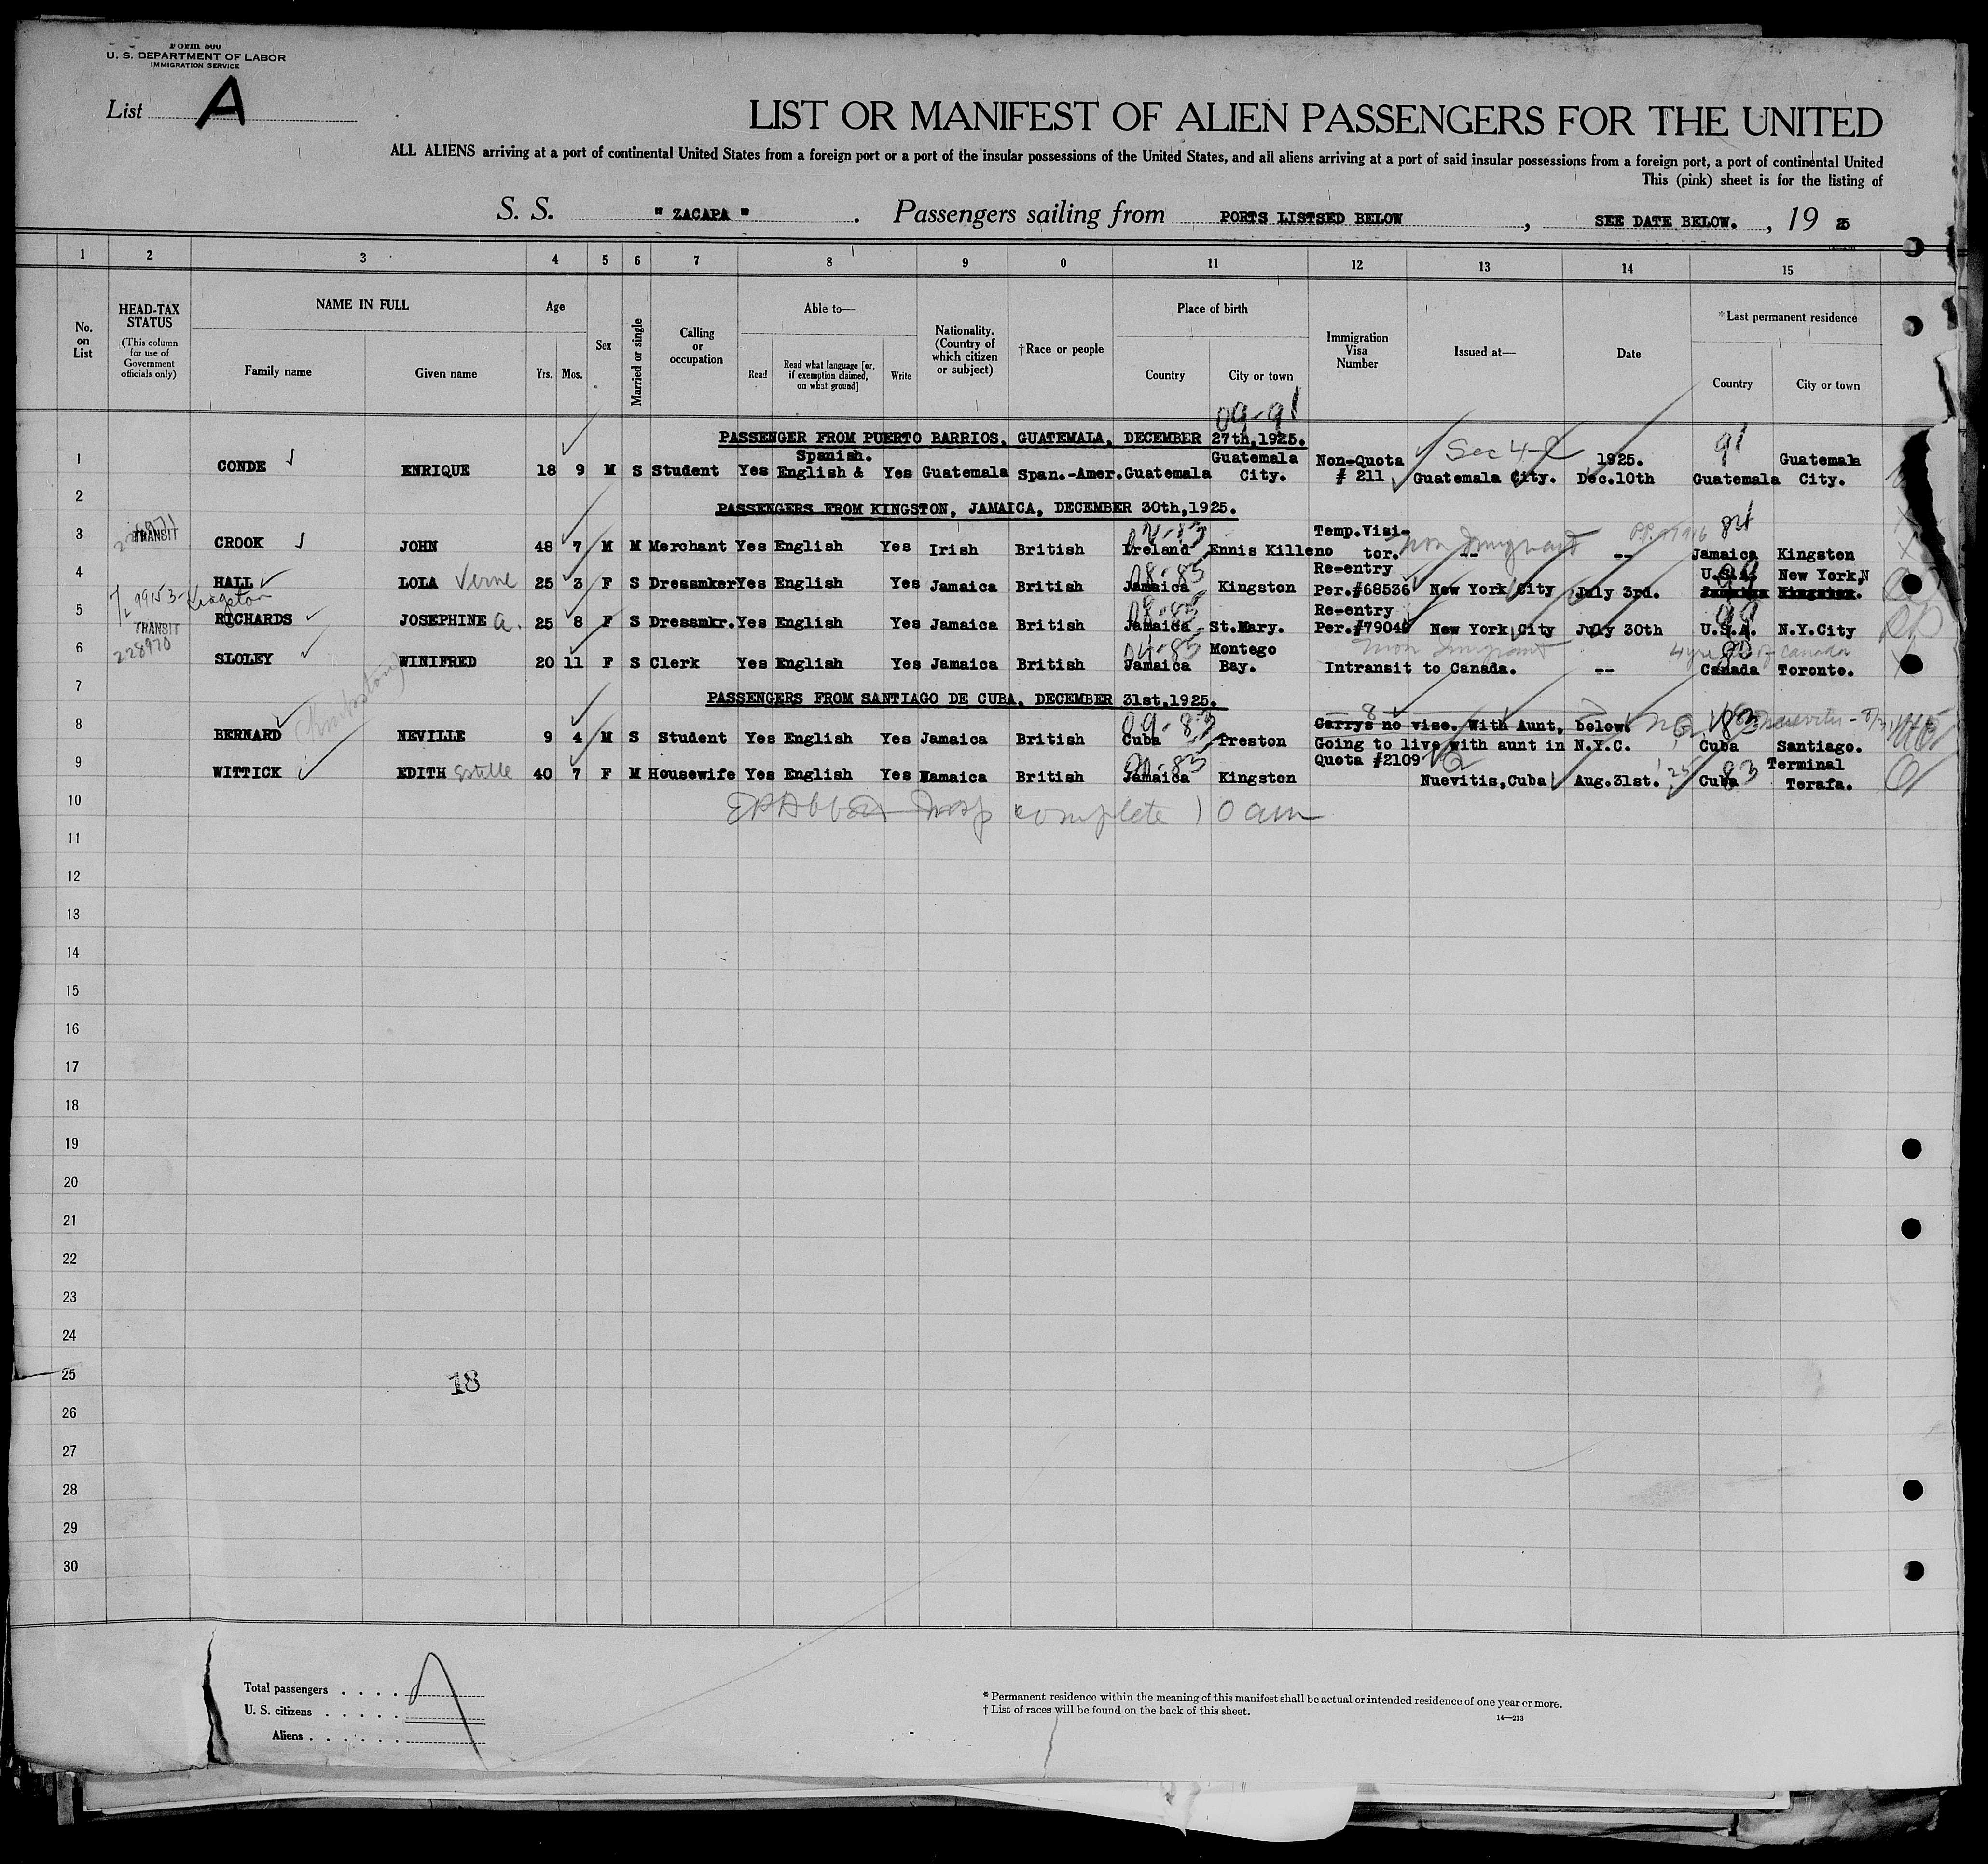 Form 500
U. S. DEPARTMENT OF LABOR
IMMIGRATION SERVICE
List A
LIST OR MANIFEST OF ALIEN PASSENGERS FOR THE UNITED
ALL ALIENS arriving at a port of continental United States from a foreign port or a port of the insular possessions of the United States, and all aliens arriving at a port of said insular possessions from a foreign port, a port of continental United
This (pink) sheet is for the listing of
S. S. " ZACAPA " . Passengers sailing from PORTS LISTSED BELOW , SEE DATE BELOW. , 19 25
1 2 3 4 5 6 7 8 9 0 11 12 13 14 15
No. on List
HEAD-TAX STATUS
(This column for use of Government officials only)
NAME IN FULL
Family name Given name
Age
Yrs. Mos.
Sex
Married or single
Calling or occupation
Able to—
Read Read what language [or, if exemption claimed, on what ground] Write
Nationality. (Country of which citizen or subject)
†Race or people
Place of birth
Country City or town
Immigration Visa Number
Issued at—
Date
*Last permanent residence
Country City or town
09-91
PASSENGER FROM PUERTO BARRIOS, GUATEMALA, DECEMBER 27th,1925.
Spanish. Guatemala Non-Quota Sec 4-e 1925. 91 Guatemala
1 CONDE ENRIQUE 18 9 M S Student Yes English & Yes Guatemala Span.-Amer. Guatemala City. # 211 Guatemala City. Dec.10th Guatemala City.
2
PASSENGERS FROM KINGSTON, JAMAICA, DECEMBER 30th,1925.
TRANSIT
Temp.Visi- non Immigrant 84
3 CROOK JOHN 48 7 M M Merchant Yes English Yes Irish British Ireland Ennis Killeno tor. -- -- Jamaica Kingston
08-83 Re-entry U.S.A. New York,N
4 HALL LOLA Verne 25 3 F S Dressmker Yes English Yes Jamaica British Jamaica Kingston Per.#68536 New York City July 3rd. Jamaica Kingston.
Kingston
08-83 Re-entry 99
5 RICHARDS JOSEPHINE A. 25 8 F S Dressmkr. Yes English Yes Jamaica British Jamaica St.Mary. Per.#79045 New York City July 30th U.S.A. N.Y.City
TRANSIT
228970
Montego non Immigrant
6 SLOLEY WINIFRED 20 11 F S Clerk Yes English Yes Jamaica British Jamaica Bay. Intransit to Canada. -- Canada Toronto.
7
PASSENGERS FROM SANTIAGO DE CUBA, DECEMBER 31st,1925.
09-83 Carrys no vise. With Aunt, below. 83
8 BERNARD NEVILLE 9 4 M S Student Yes English Yes Jamaica British Cuba Preston Going to live with aunt in N.Y.C. Cuba Santiago.
Quota #2109 Terminal
9 WITTICK EDITH Estille 40 7 F M Housewife Yes English Yes Jamaica British Jamaica Kingston Nuevitis,Cuba Aug.31st. 25 Cuba 83 Terafa.
10 complete 10 am
11
12
13
14
15
16
17
18
19
20
21
22
23
24
25
18
26
27
28
29
30
Total passengers . . . .
U. S. citizens . . . . .
Aliens . . . . . .
* Permanent residence within the meaning of this manifest shall be actual or intended residence of one year or more.
† List of races will be found on the back of this sheet.
14—213